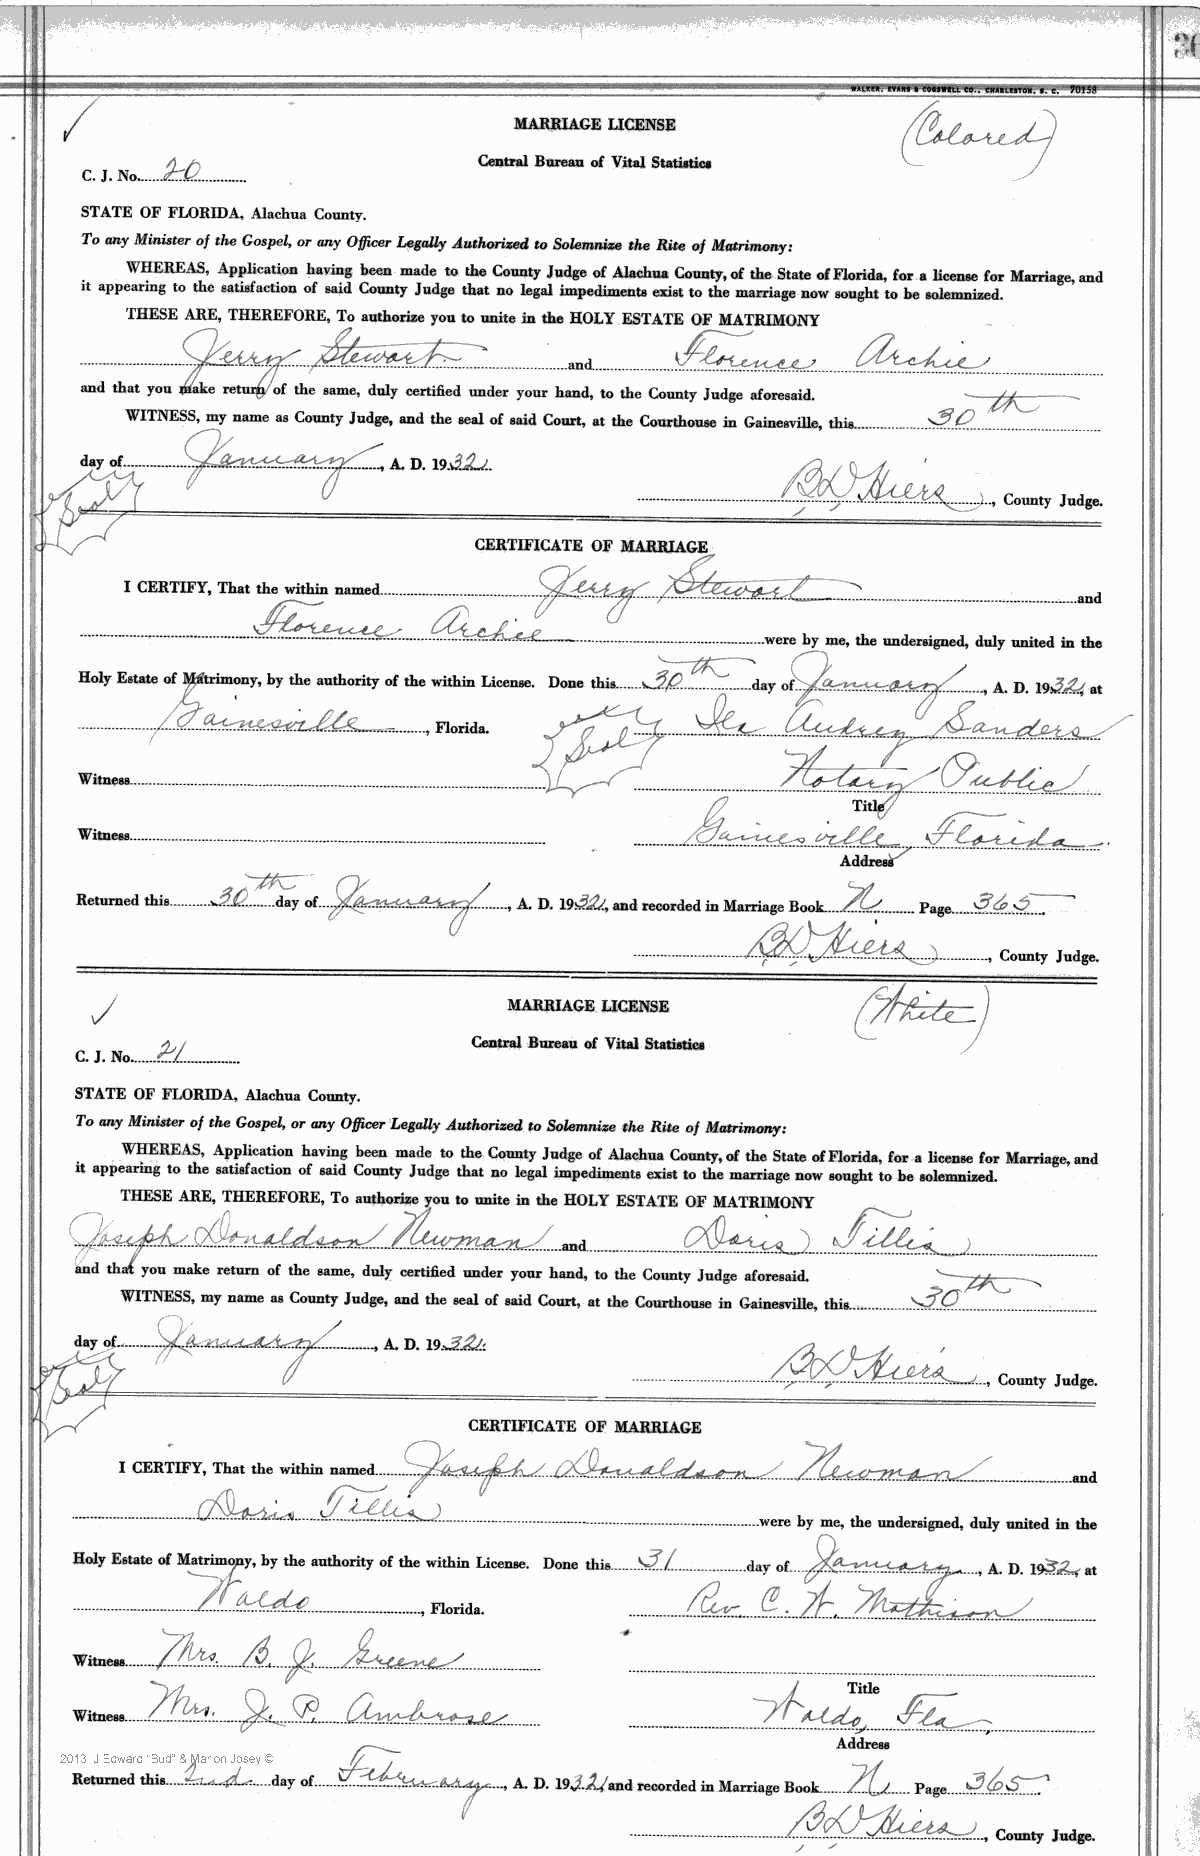 WALKER, EVANS & COGSWELL CO., CHARLESTON, S. C. 70158
MARRIAGE LICENSE
(Colored)
Central Bureau of Vital Statistics
C. J. No. 20
STATE OF FLORIDA, Alachua County.
To any Minister of the Gospel, or any Officer Legally Authorized to Solemnize the Rite of Matrimony:
WHEREAS, Application having been made to the County Judge of Alachua County, of the State of Florida, for a license for Marriage, and
it appearing to the satisfaction of said County Judge that no legal impediments exist to the marriage now sought to be solemnized.
THESE ARE, THEREFORE, To authorize you to unite in the HOLY ESTATE OF MATRIMONY
Jerry Stewart and Florence Archie
and that you make return of the same, duly certified under your hand, to the County Judge aforesaid.
WITNESS, my name as County Judge, and the seal of said Court, at the Courthouse in Gainesville, this 30th
day of January, A. D. 1932.
Seal
B D Hiers, County Judge.
CERTIFICATE OF MARRIAGE
I CERTIFY, That the within named Jerry Stewart and
Florence Archie were by me, the undersigned, duly united in the
Holy Estate of Matrimony, by the authority of the within License. Done this 30th day of January, A. D. 1932, at
Gainesville, Florida. Seal Ila Audrey Sanders
Witness Notary Public
Title
Witness Gainesville, Florida.
Address
Returned this 30th day of January, A. D. 1932, and recorded in Marriage Book N Page 365.
B D Hiers, County Judge.
MARRIAGE LICENSE
(White)
Central Bureau of Vital Statistics
C. J. No. 21
STATE OF FLORIDA, Alachua County.
To any Minister of the Gospel, or any Officer Legally Authorized to Solemnize the Rite of Matrimony:
WHEREAS, Application having been made to the County Judge of Alachua County, of the State of Florida, for a license for Marriage, and
it appearing to the satisfaction of said County Judge that no legal impediments exist to the marriage now sought to be solemnized.
THESE ARE, THEREFORE, To authorize you to unite in the HOLY ESTATE OF MATRIMONY
Joseph Donaldson Newman and Doris Tillis
and that you make return of the same, duly certified under your hand, to the County Judge aforesaid.
WITNESS, my name as County Judge, and the seal of said Court, at the Courthouse in Gainesville, this 30th
day of January, A. D. 1932.
Seal
B D Hiers, County Judge.
CERTIFICATE OF MARRIAGE
I CERTIFY, That the within named Joseph Donaldson Newman and
Doris Tillis were by me, the undersigned, duly united in the
Holy Estate of Matrimony, by the authority of the within License. Done this 31 day of January, A. D. 1932, at
Waldo, Florida. Rev. C. W. Mathison
Witness Mrs. B. J. Greene
Title
Witness Mrs. J. P. Ambrose Waldo, Fla.
Address
2013 J Edward "Bud" & Marion Josey ©
Returned this 2nd day of February, A. D. 1932, and recorded in Marriage Book N Page 365.
B D Hiers, County Judge.